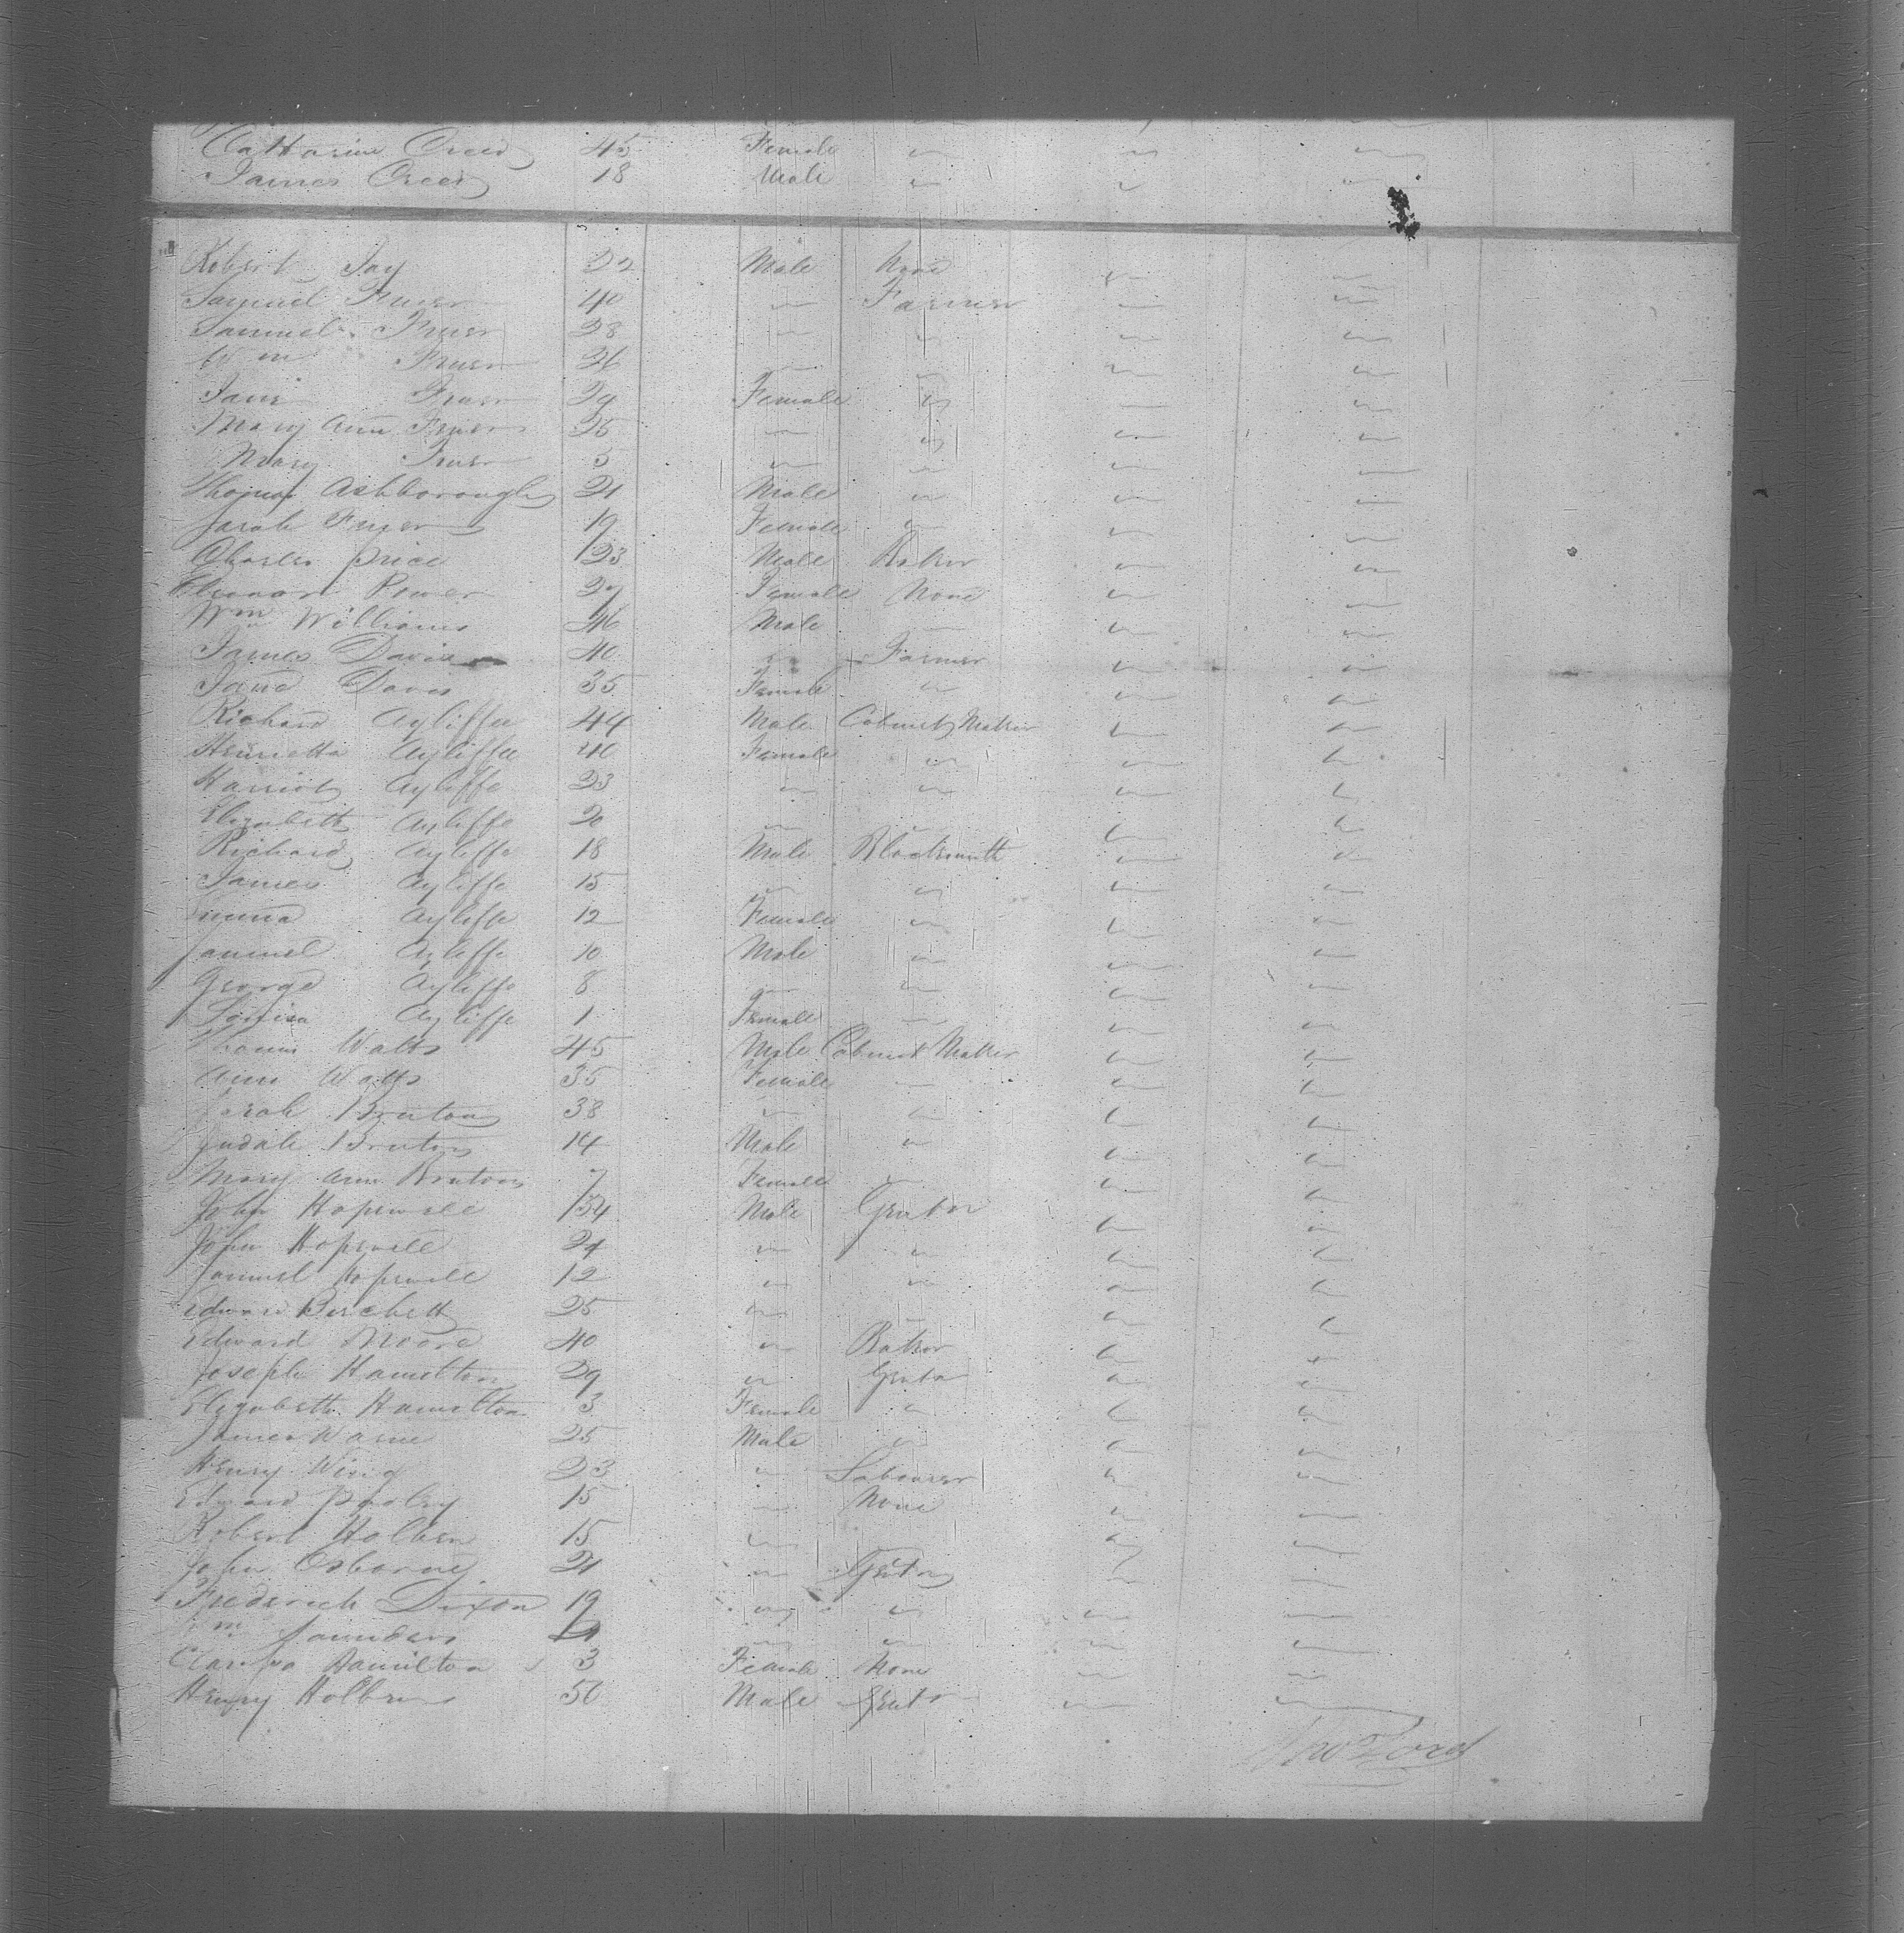 Catharine Creed 45 Female " " "
James Creed 18 Male " " "
Robert Jay 22 Male None " "
Samuel Fruer 40 " Farmer " "
Samuel Fruer 28 " " " "
Wm Fruer 26 " " " "
Jane Fruer 29 Female " " "
Mary Ann Fruer 25 " " " "
Mary Fruer 5 " " " "
Thomas Ashborough 21 Male " " "
Sarah Fruer 19 Female " " "
Charles Price 23 Male Baker " "
Eleanor Power 27 Female None " "
Wm Williams 46 Male " " "
James Davis 40 " Farmer " "
Jane Davis 35 Female " " "
Richard Ayliffe 44 Male Cabinet Maker " "
Henrietta Ayliffe 40 Female " " "
Harriot Ayliffe 23 " " " "
Elizabeth Ayliffe 20 " " " "
Richard Ayliffe 18 Male Blacksmith " "
James Ayliffe 15 " " " "
Emma Ayliffe 12 Female " " "
Samuel Ayliffe 10 Male " " "
George Ayliffe 8 " " " "
Louisa Ayliffe 1 Female " " "
Thomas Watts 45 Male Cabinet Maker " "
Ann Watts 35 Female " " "
Sarah Bruton 38 " " " "
Bruton 14 Male " " "
Mary Ann Bruton 7 Female " " "
John Hopewell 54 Male Gentn " "
John Hopewell 24 " " " "
Samuel Hopewell 12 " " " "
Edward Birchett 25 " " " "
Edward Moore 40 " Baker " "
Joseph Hamilton 29 " Gentn " "
Elizabeth Hamilton 3 Female " " "
James Warne 25 Male " " "
Henry Wing 23 " Labourer " "
Edward Pooley 15 " None " "
Robert Holben 15 " " " "
John Osborne 21 " Gentn " "
Frederick Dixon 19 " " " "
Wm Saunders " " " "
Clarissa Hamilton 3 Female None " "
Henry Holben 50 Male Gentn " "
Thos Ford